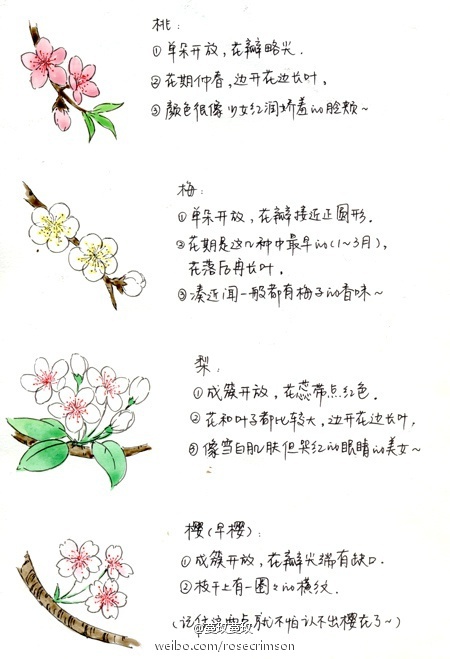 桃：
①单朵开放，花瓣略尖.
②花期仲春，边开花边长叶，
③颜色很像少女红润娇羞的脸颊~
梅：
①单朵开放，花瓣接近正圆形.
②花期是这几种中最早的(1~3月)，
花落后再长叶.
③凑近闻一般都有梅子的香味~
梨：
①成簇开放，花蕊带点红色.
②花和叶子都比较大，边开花边长叶，
③像雪白肌肤但哭红的眼睛的美女~
樱(早樱)：
①成簇开放，花瓣尖端有缺口.
②枝干上有一圈々的横纹.
(记住这两点就不怕认不出樱花了~)
@蔓玫蔓玫
weibo.com/rosecrimson